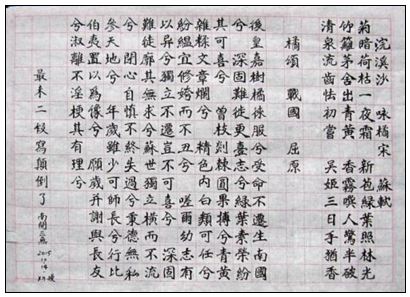 浣溪沙 咏橘 宋 蘇軾
菊暗荷枯一夜霜 新苞綠葉照林光
竹籬茅舍出青黃 香霧噀人驚半破
清泉流齒怯初嘗 吳姬三日手猶香
橘頌 戰國 屈原
後皇嘉樹橘徠服兮受命不遷生南國
兮 深固難徙更壹志兮綠葉素榮紛
其可喜兮 曾枝剡棘圓果摶兮青黃
雜糅文章爛兮 精色内白類可任兮
紛緼宜修姱而不丑兮 嗟爾幼志有
以異兮獨立不遷豈不可喜兮 深固
難徙廓其無求兮蘇世獨立橫而不流
兮 閉心自慎不終失過兮秉德無私
參天地兮 年歲雖少可師長兮行比
伯夷置以為像兮 願歲并謝與長友
兮淑離不淫梗其有理兮
最末二候寫顛倒了
2015